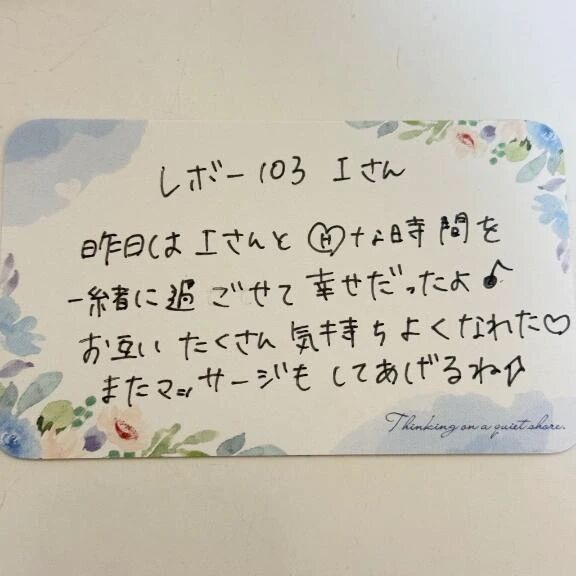 レボー103 Iさん
昨日はIさんとⒽな時間を
一緒に過ごせて幸せだったよ♪
お互いたくさん気持ちよくなれた♡
またマッサージもしてあげるね♪
Thinking on a quiet shore.